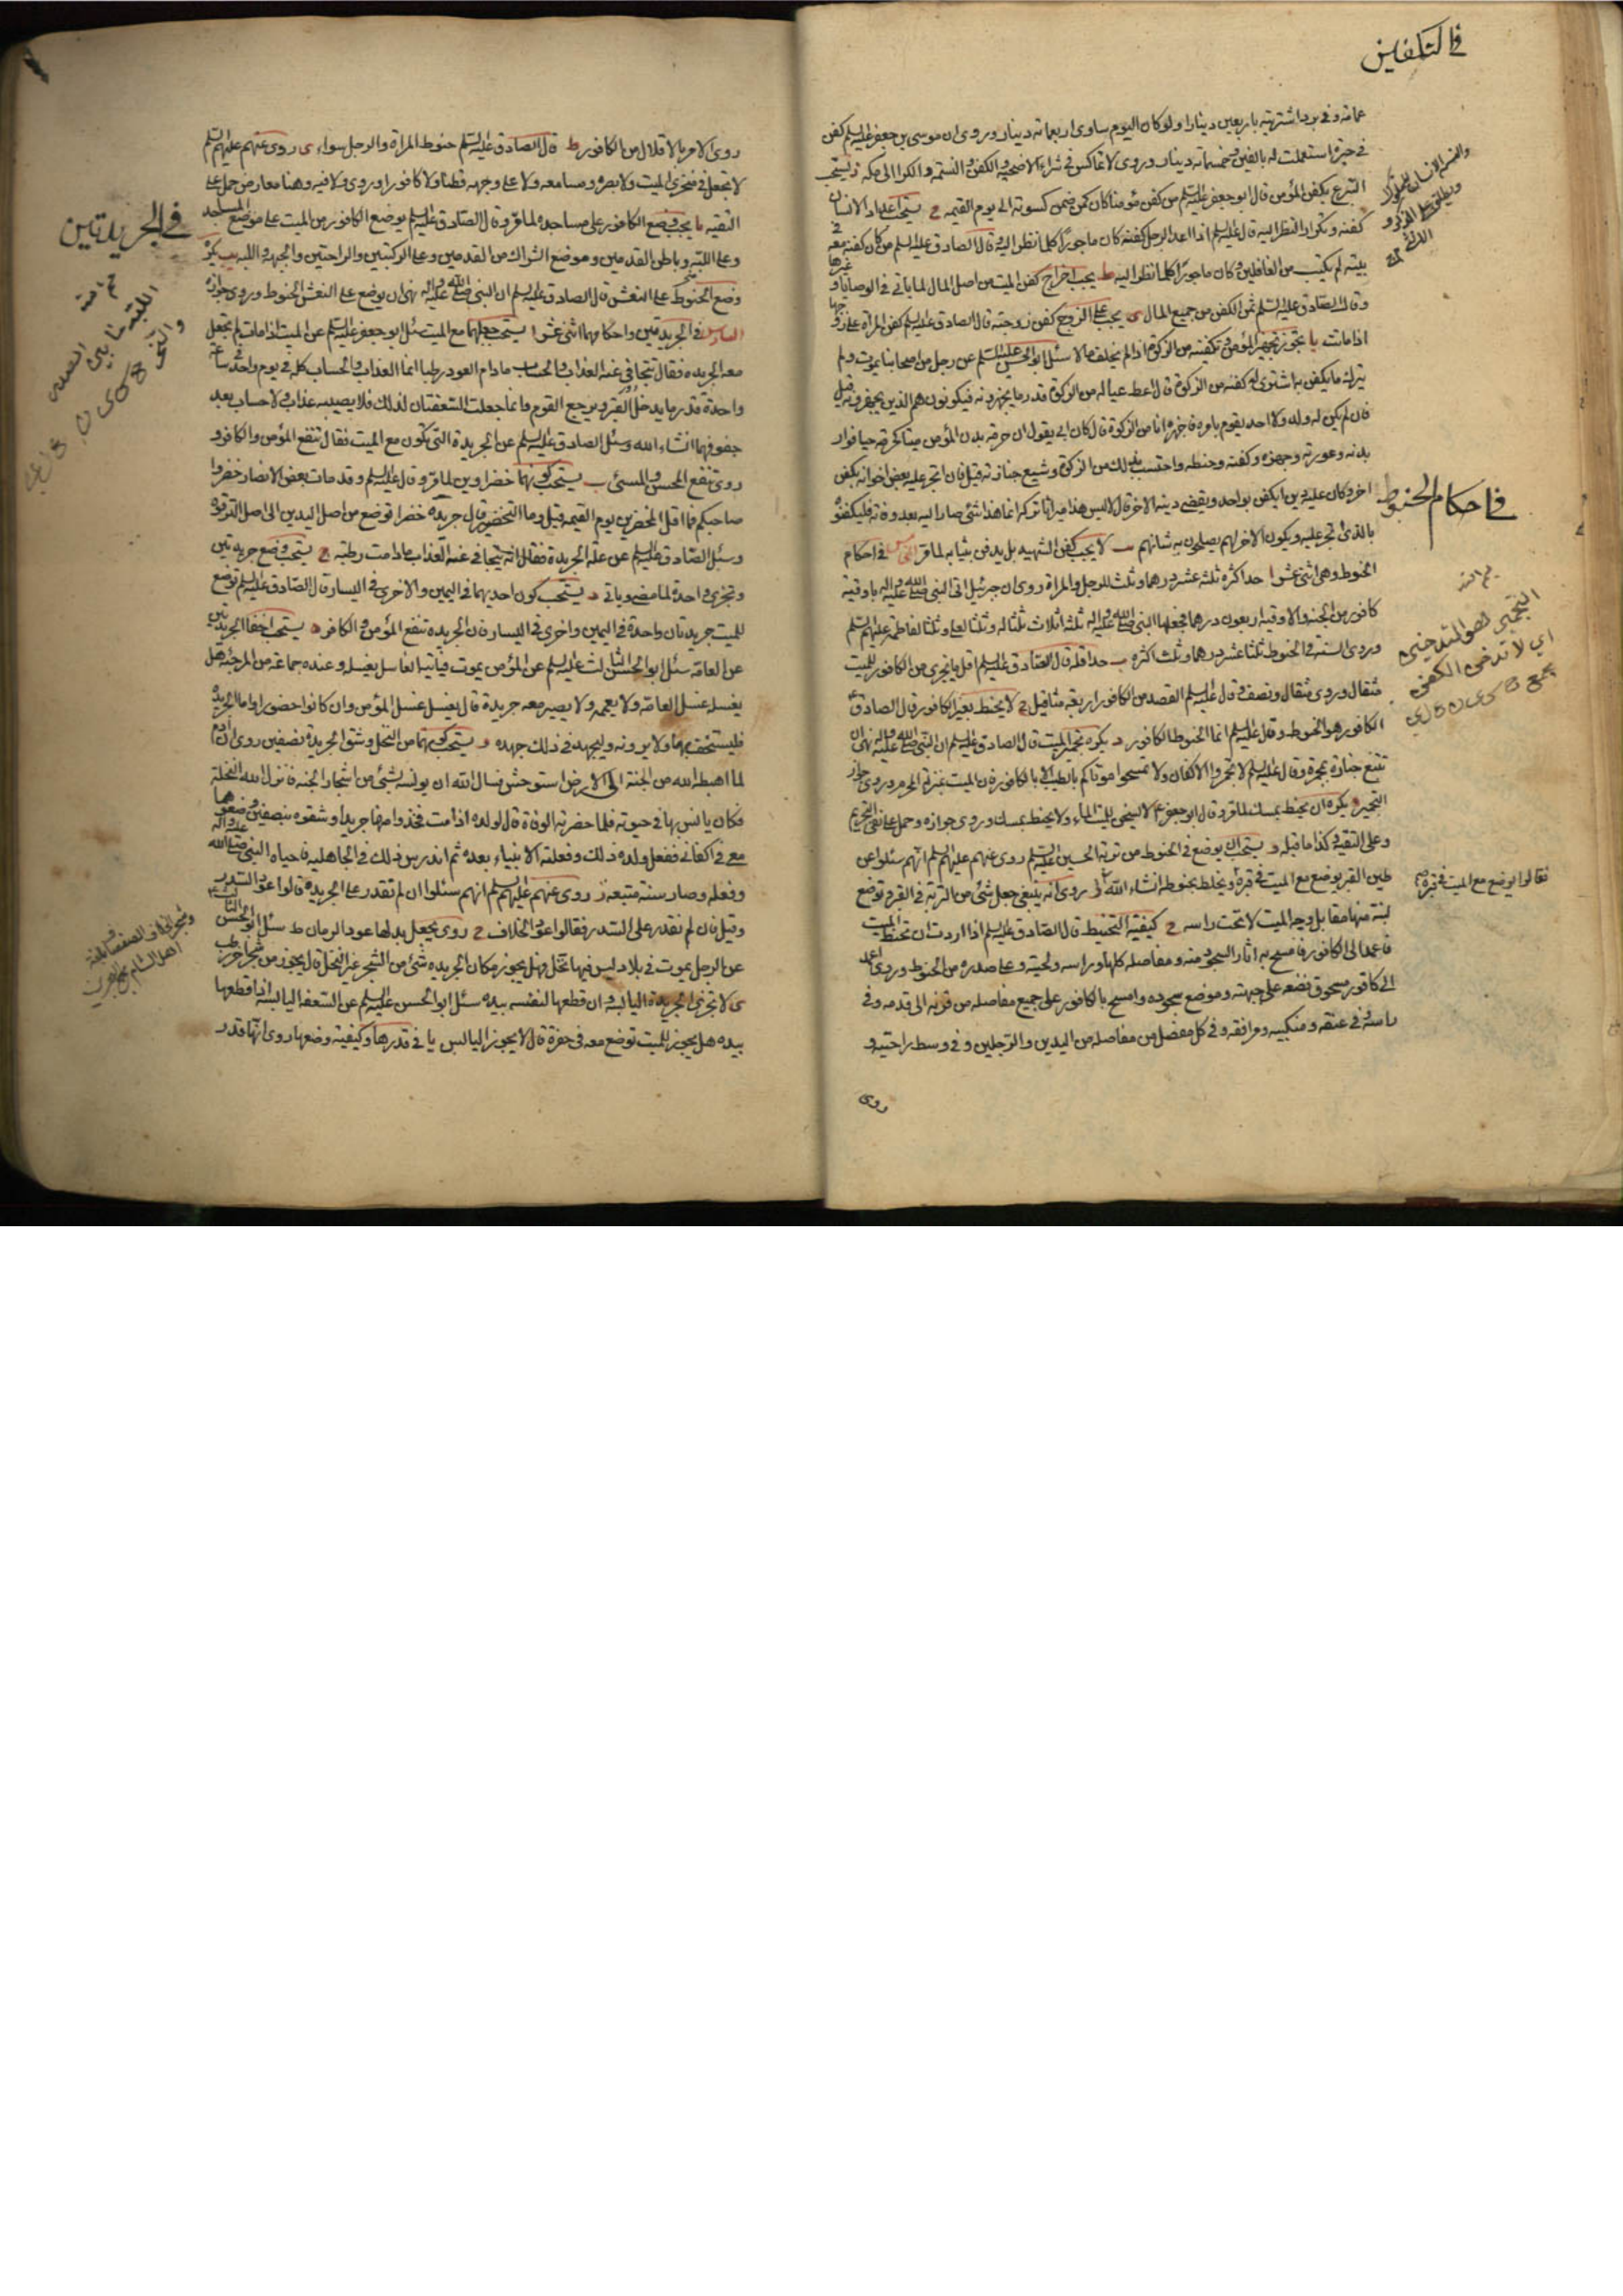 في التكفين
عمامة وفي برد اشتريته باربعين دينارا ولو كان اليوم لساوى اربعمائة دينار وروى ان موسى بن جعفر عليه السلم كفن
في حبرة استعملت له بالفين وخمسمائة دينار وروى لا تماكس في شراء الاضحية والكفن والنسمة والكرا الى مكة ز يستحب
التبرع بكفن المؤمن قال ابو جعفر عليه السلم من كفن مؤمنا كان كمن ضمن كسوته الى يوم القيمه ح يستحب اعداد الانسان
كفنه وتكرار النظر اليه قال عليه السلم اذا اعد الرجل كفنه كان ماجورا كلما نظر اليه وقال الصادق عليه السلم من كان كفنه معه في
بيته لم يكتب من الغافلين وكان ماجورا كلما نظر اليه ط يجب اخراج كفن الميت من اصل المال لما ياتي في الوصايا وغيرها
وقال الصادق عليه السلم ثمن الكفن من جميع المال ى يجب على الزوج كفن زوجته قال الصادق عليه السلم كفن المراة على زوجها
اذا ماتت يا يجوز تجهيز المؤمن وتكفينه من الزكوة اذا لم يخلف مالا سئل ابو الحسن عليه السلم عن رجل من اصحابنا يموت ولم
يترك ما يكفن به اشترى له كفنه من الزكوة قال اعط عياله من الزكوة قدر ما يجهزونه فيكونون هم الذين يجهزونه قيل
فان لم يكن له ولد ولا احد يقوم بامره فاجهزه انا من الزكوة قال كان ابي يقول ان حرمة بدن المؤمن ميتا كحرمته حيا فوار
بدنه وعورته وجهزه وكفنه وحنطه واحتسب بذلك من الزكوة وشيع جنازته قيل فان اتجر عليه بعض اخوانه بكفن
اخر وكان عليه دين ايكفن بواحد ويقضى دينه بالاخر قال ليس هذا ميراثا تركه انما هذا شئ صار اليه بعد وفاته فليكفنوه
بالذي اتجر عليه ويكون الاخر لهم يصلحون به شانهم يب لا يجب كفن الشهيد بل يدفن بثيابه لما مر الخامس في احكام
في احكام الحنوط
الحنوط وهي اثنى عشر ا حد اكثره ثلثة عشر درهما وثلث للرجل والمراة روى ان جبرئيل اتى النبي صلى الله عليه واله باوقية
كافور من الجنة والاوقية اربعون درهما فجعلها النبي صلى الله عليه واله ثلثة اثلاث ثلثا له وثلثا لعلي وثلثا لفاطمة عليهم السلم
وروى السنة في الحنوط ثلثة عشر درهما وثلث اكثره ب حد اقله قال الصادق عليه السلم اقل ما يجزى من الكافور للميت
مثقال وروى مثقال ونصف وقال عليه السلم القصد من الكافور اربعة مثاقيل ج لا يحنط بغير الكافور قال الصادق ع
الكافور هو الحنوط وقال عليه السلم انما الحنوط الكافور د يكره تجمير الميت قال الصادق عليه السلم ان النبي صلى الله عليه واله نهى ان
تتبع جنازة بمجمرة وقال عليه السلم لا تجمروا الاكفان ولا تمسحوا موتاكم بالطيب الا بالكافور فان الميت بمنزلة المحرم وروى جواز
التجمير ه يكره ان يحنط بمسك لما مر وقال ابو جعفر ع لا يسخن للميت الماء ولا يحنط بمسك وروى جوازه وحمل على نفى التحريم
وعلى التقية وكذا ما قبله و يستحب ان يوضع في الحنوط من تربة الحسين عليه السلم روى عنهم عليهم السلم انهم سئلوا عن
طين القبر يوضع مع الميت في قبره ويخلط بحنوطه انشاء الله وروى انه ينبغي جعل شئ من التربة في القبر وتوضع
فقالوا يوضع مع الميت في قبره صح
لبنة منها مقابل وجه الميت لا تحت راسه ح كيفية التحنيط قال الصادق عليه السلم اذا اردت ان تحنط الميت
فاعمد الى الكافور فامسح به اثار السجود منه ومفاصله كلها وراسه ولحيته وعلى صدره من الحنوط وروى اعمد
الى كافور مسحوق فضعه على جبهته وموضع سجوده وامسح بالكافور على جميع مفاصله من قرنه الى قدمه وفي
راسه وفي عنقه ومنكبيه ومرافقه وفي كل مفصل من مفاصله من اليدين والرجلين وفي وسط راحتيه و
روى
روى الامر بالاقلال من الكافور ط قال الصادق عليه السلم حنوط المراة والرجل سواء ى روى عنهم عليهم السلم
لا تجعل في منخرى الميت ولا بصره ومسامعه ولا على وجهه قطنا ولا كافورا وروى ولا فيه وهنا معارض حمل على
التقيه يا يجب وضع الكافور على مساجده لما مر وقال الصادق عليه السلم يوضع الكافور من الميت على موضع المساجد
في الجريدتين
وعلى اللبة وباطن القدمين وموضع الشراك من القدمين وعلى الركبتين والراحتين والجبهة واللبه يب يكره
وضع الحنوط على النعش قال الصادق عليه السلم ان النبي صلى الله عليه واله نهى ان يوضع على النعش الحنوط وروى جوازه
السادس في الجريدتين واحكامهما اثنى عشر ا يستحب جعلهما مع الميت سئل ابو جعفر عليه السلم عن الميت اذا مات لم تجعل
معه الجريده فقال يتجافى عنه العذاب والحساب ما دام العود رطبا انما العذاب والحساب كله في يوم واحد في ساعة
واحدة قدر ما يدخل القبر ويرجع القوم وانما جعلت السعفتان لذلك فلا يصيبه عذاب ولا حساب بعد
جفوفهما انشاء الله وسئل الصادق عليه السلم عن الجريدة التي تكون مع الميت فقال تنفع المؤمن والكافر و
روى تنفع المحسن والمسئ ب يستحب كونهما خضراوين لما مر وقال عليه السلم وقد مات بعض الانصار خضروا
صاحبكم فما اقل المخضرين يوم القيمه قيل وما التخضير قال جريدة خضرا توضع من اصل اليدين الى اصل الترقوة
وسئل الصادق عليه السلم عن علة الجريدة فقال انه يتجافى عنه العذاب ما دامت رطبة ج يستحب وضع جريدتين
وتجزى واحدة لما مضى وياتي د يستحب كون احديهما في اليمين والاخرى في اليسار قال الصادق عليه السلم توضع
للميت جريدتان واحدة في اليمين واخرى في اليسار فان الجريدة تنفع المؤمن والكافر ه يستحب اخفا الجريدتين
عن العامة سئل ابو الحسن الثالث عليه السلم عن المؤمن يموت فياتيه الغاسل يغسله وعنده جماعة من المرجئة هل
يغسله غسل العامة ولا يعممه ولا يصير معه جريدة قال يغسل غسل المؤمن وان كانوا حضورا واما الجريدة
فليستخف بها ولا يرونه وليجهد في ذلك جهده و يستحب كونهما من النخل وشق الجريدة نصفين روى ان ادم
لما اهبطه الله من الجنة الى الارض استوحش فسال الله ان يونسه بشئ من اشجار الجنه فانزل الله النخلة
فكان يانس بها في حيوته فلما حضرته الوفاة قال لولده اذا مت فخذوا منها جريدا وشقوه بنصفين وضعوهما
معي في اكفاني ففعل ولده ذلك وفعلته الانبياء بعده ثم اندرس ذلك في الجاهلية فاحياه النبي صلى الله عليه واله
وفعله وصار سنة متبعة ز روى عنهم عليهم السلم انهم سئلوا ان لم نقدر على الجريدة قالوا عود السدر
وقيل فان لم نقدر على السدر فقالوا عود الخلاف ح روى يجعل بدلها عود الرمان ط سئل ابو الحسن الثالث ع
عن الرجل يموت في بلاد ليس فيها نخل فهل يجوز مكان الجريدة شئ من الشجر غير النخل قال يجوز من شجر اخر رطب
ى لا تجزى الجريدة اليابسة وان قطعها لنفسه بيده سئل ابو الحسن عليه السلم عن السعفة اليابسة اذا قطعها
بيده هل يجوز للميت توضع معه في حفرة قال لا يجوز اليابس يا في قدرها وكيفية وضعها روى انها قدر